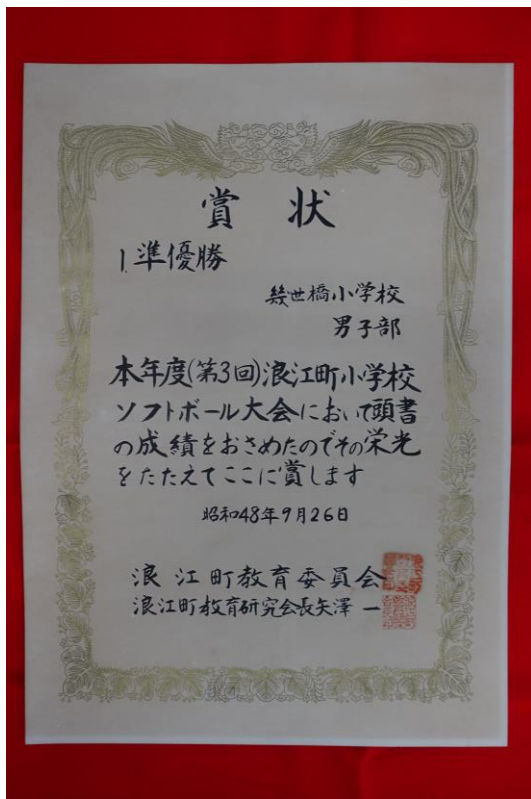 賞状
1.準優勝
幾世橋小学校
男子部
本年度(第3回)浪江町小学校
ソフトボール大会において頭書
の成績をおさめたのでその栄光
をたたえてここに賞します
昭和48年9月26日
浪江町教育委員会
浪江町教育研究会長矢澤一